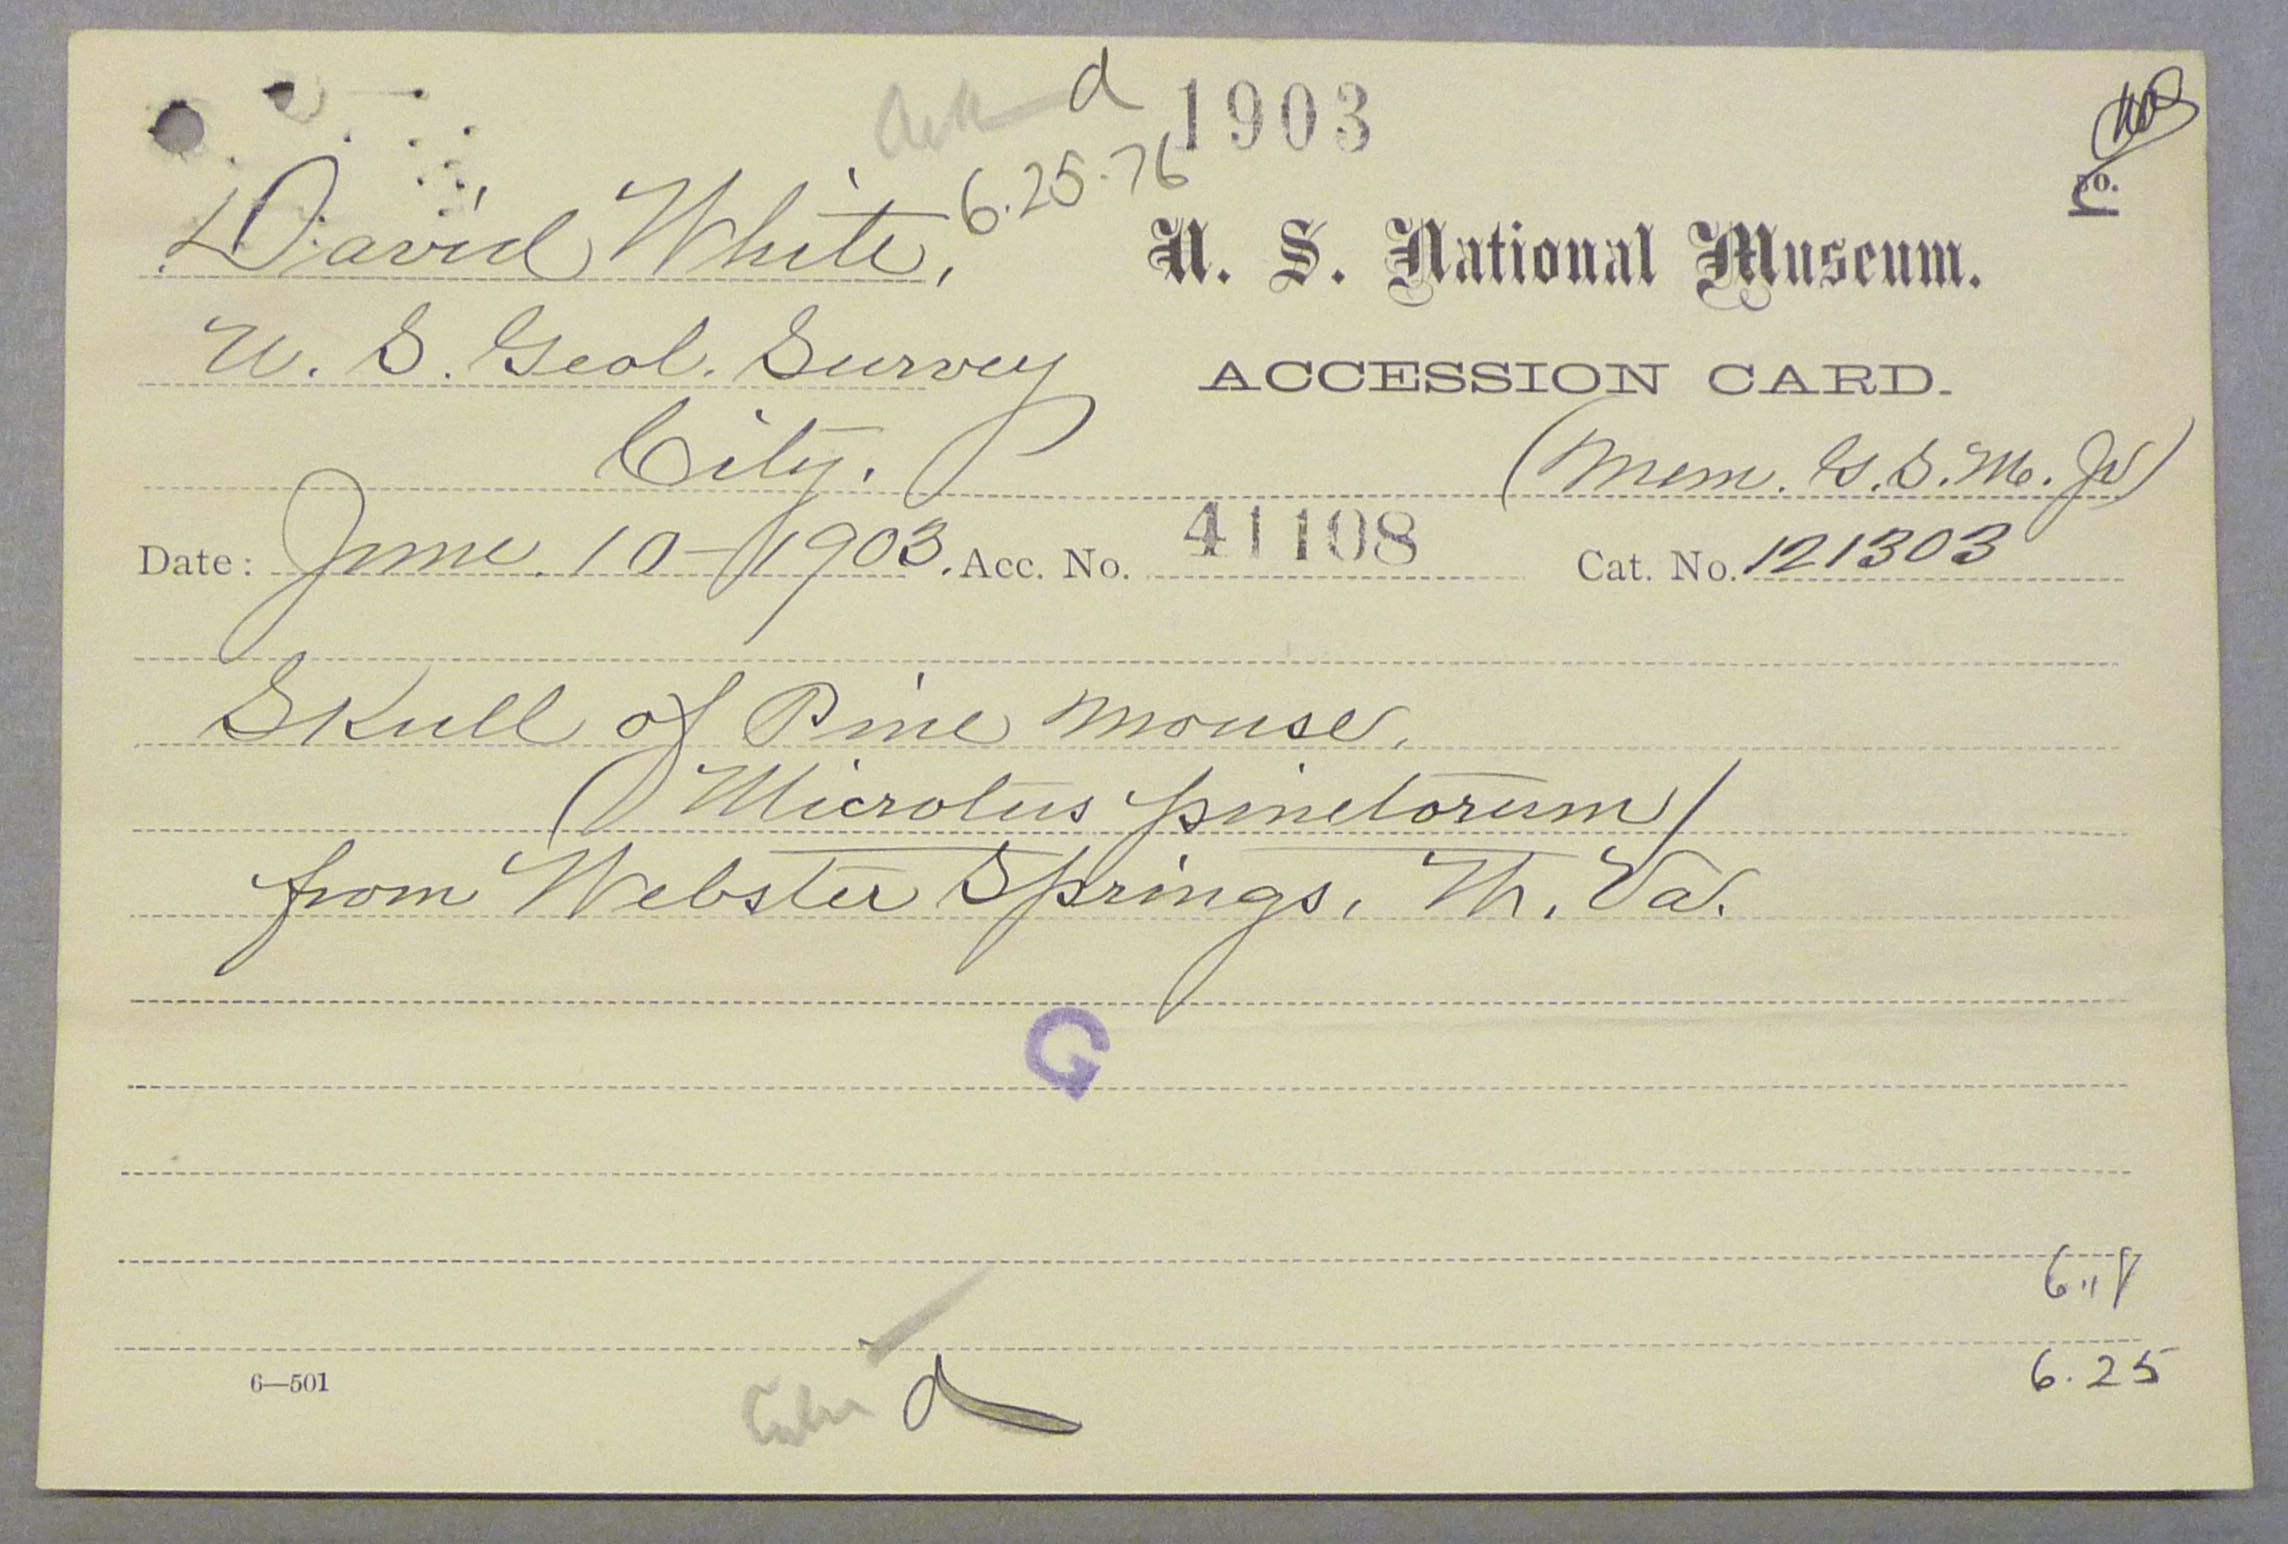 d 1903
6.25.76
no.
David White,
U. S. National Museum.
U. S. Geol. Survey
ACCESSION CARD.
City.
(Mem. G.S.M. Jr)
Date: June 10-1903. Acc. No. 41108 Cat. No. 121303
Skull of Pine mouse,
(Microtus pinetorum)
from Webster Springs, W. Va.
G
6.25
6—501
d